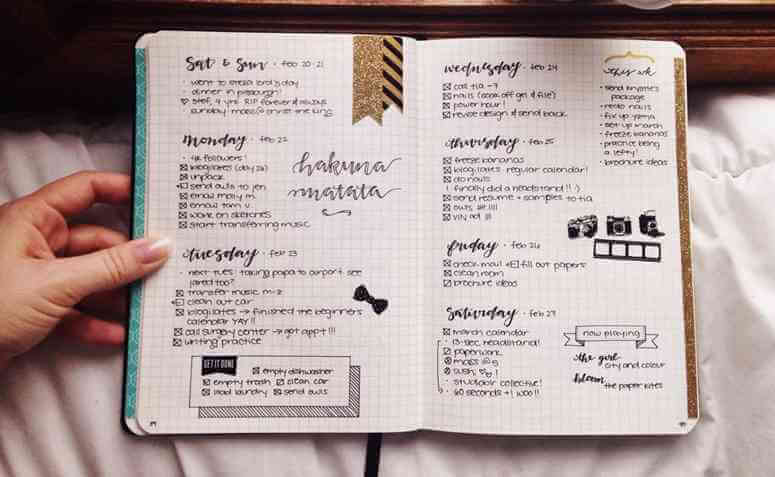 Sat & Sun · feb 20-21
dinner in pittsburgh!
stef, 4 yrs. RIP forever & always
sunday mass @ christ the king
monday · feb 22
· 4k followers!
blogilates (day 26)
unpack
send owls to jen
email molly m.
email tam v.
work on sketches
start transferring music
hakuna
matata
tuesday · feb 23
· next tues: taking papa to airport. see
jared too?
transfer music m-z
clean out car
blogilates → finished the beginners
calendar YAY!!
call surgery center → get appt!!!
writing practice
GET IT DONE
empty dishwasher
empty trash
clean car
load laundry
send owls
wednesday · feb 24
call tia -7
nails (soak off gel & file)
power hour!
revise design & send back
thursday · feb 25
freeze bananas
blogilates: regular calendar!
do nails
! finally did a headstand!! :)
send resume + samples to tia
owls
friday · feb 26
check mail
fill out papers
clean room
brochure ideas
saturday · feb 27
march calendar
13-sec. headstand!
paperwork
mass @ 5
sushi
studio1 collective!
60 seconds +! woo!!
this wk
· send krystle's
package
· redo nails
· fix up yama
· set up march
· freeze bananas
· practice being
a lefty!
· brochure ideas
now playing
the girl
city and colour
bloom
the paper kites